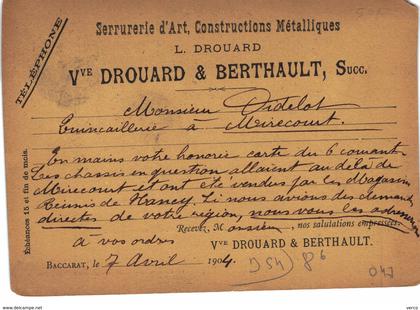 TÉLÉPHONE
Serrurerie d'Art, Constructions Métalliques
L. DROUARD
Vve DROUARD & BERTHAULT, Succ.
Monsieur Didelot
Quincaillerie à Mirecourt.
En mains votre honorée carte du 6 courant
Les chassis en question allaient au delà de
Mirecourt et ont été vendus par les Magasins
Réunis de Nancy. Si nous avions des demandes
directes de votre région, nous vous les adresserons
Recevez, Monsieur, nos salutations empressées
à vos ordres
Vve DROUARD & BERTHAULT.
BACCARAT, le 7 Avril 1904.
Échéances 15 et fin de mois.